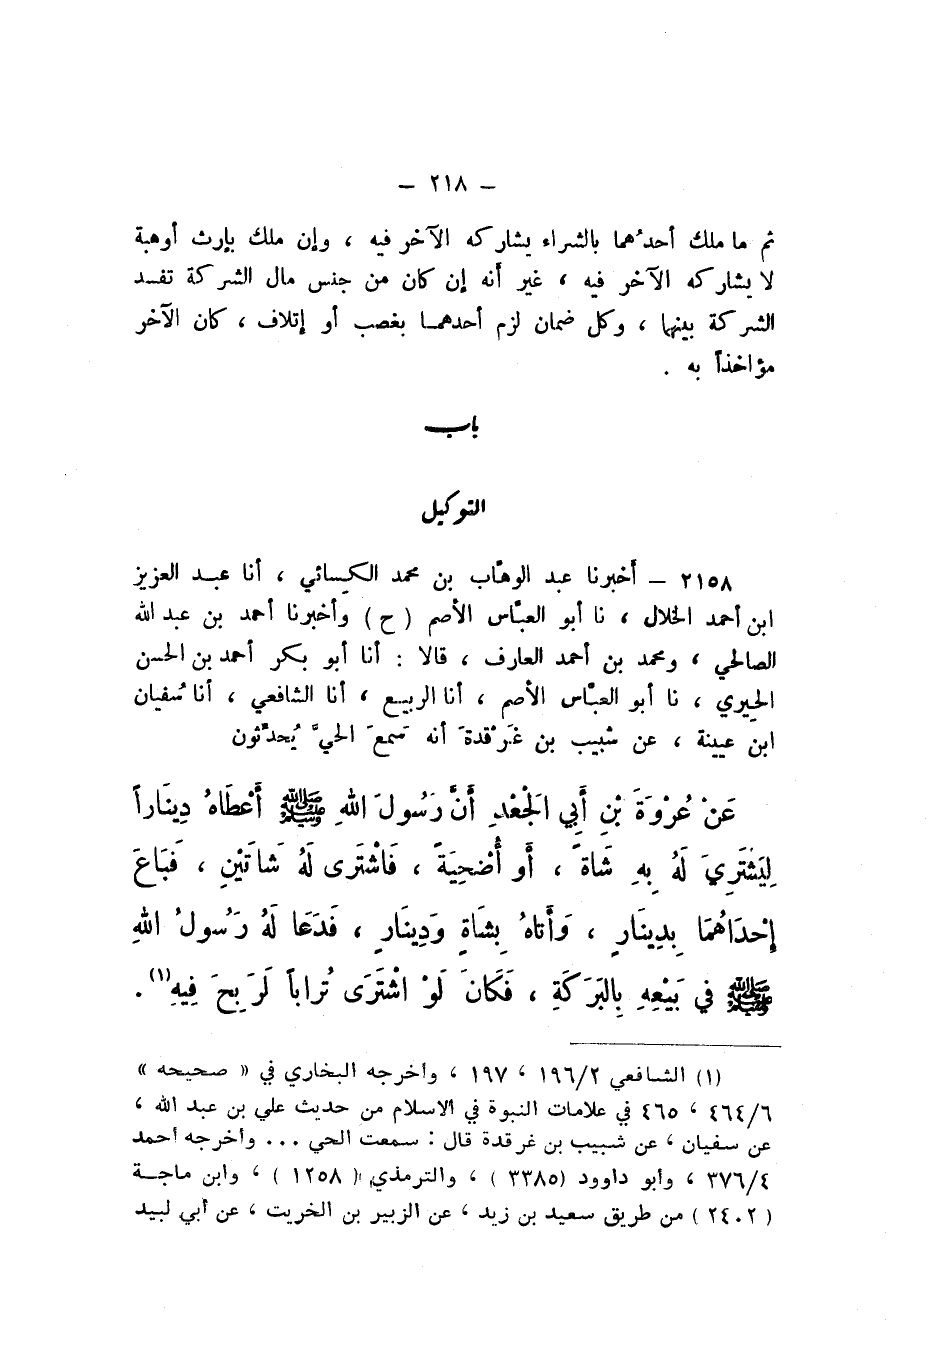 – ٢١٨ –
ثم ما ملك أحدُهما بالشراء يشاركه الآخر فيه ، وإن ملك بإرث أوهبة
لا يشاركه الآخر فيه ، غير أنه إن كان من جنس مال الشركة تفسد
الشركة بينهما ، وكل ضمان لزم أحدهما بغصب أو إتلاف ، كان الآخر
مؤاخذاً به .
باب
التوكيل
٢١٥٨ – أخبرنا عبد الوهّاب بن محمد الكِسائي ، أنا عبد العزيز
ابن أحمد الخلال ، نا أبو العبّاس الأصم ( ح ) وأخبرنا أحمد بن عبد الله
الصالحي ، ومحمد بن أحمد العارف ، قالا : أنا أبو بكر أحمد بن الحسن
الحِيري ، نا أبو العبّاس الأصم ، أنا الربيع ، أنا الشافعي ، أنا سُفيان
ابن عيينة ، عن شبيب بن غَرْقدةَ أنه سمعَ الحيَّ يُحدّثون
عَنْ عُرْوَةَ بْنِ أَبِي الْجَعْدِ أَنَّ رَسُولَ اللهِ ﷺ أَعْطَاهُ دِينَاراً
لِيَشْتَرِيَ لَهُ بِهِ شَاةً ، أَو أُضْحِيَةً ، فَاشْتَرَى لَهُ شَاتَيْنِ ، فَبَاعَ
إِحْدَاهُمَا بِدِينَارٍ ، وَأَتَاهُ بِشَاةٍ وَدِينَارٍ ، فَدَعَا لَهُ رَسُولُ اللهِ
ﷺ فِي بَيْعِهِ بِالبَرَكَةِ ، فَكَانَ لَوْ اشْتَرَى تُرَاباً لَرَبِحَ فِيهِ(١) .
(١) الشافعي ١٩٦/٢ ، ١٩٧ ، وأخرجه البخاري في « صحيحه »
٤٦٤/٦ ، ٤٦٥ في علامات النبوة في الاسلام من حديث علي بن عبد الله ،
عن سفيان ، عن شبيب بن غرقدة قال : سمعت الحي ... وأخرجه أحمد
٣٧٦/٤ ، وأبو داوود (٣٣٨٥ ) ، والترمذي ( ١٢٥٨ ) ، وابن ماجة
( ٢٤٠٢ ) من طريق سعيد بن زيد ، عن الزبير بن الخريت ، عن أبي لبيد